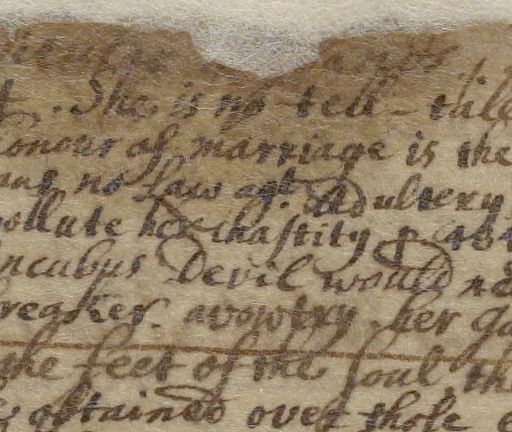 . She is no tell-
honour of marriage is the
no Law agt. Adultery
pollute her chastity p 484
incubus Devil would
breaker. avowtry. her
the feet of the soul
obtained over those